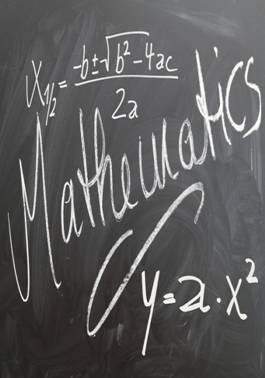 x₁/₂ = (-b±√(b²-4ac))/(2a)
Mathematics
y=a·x²